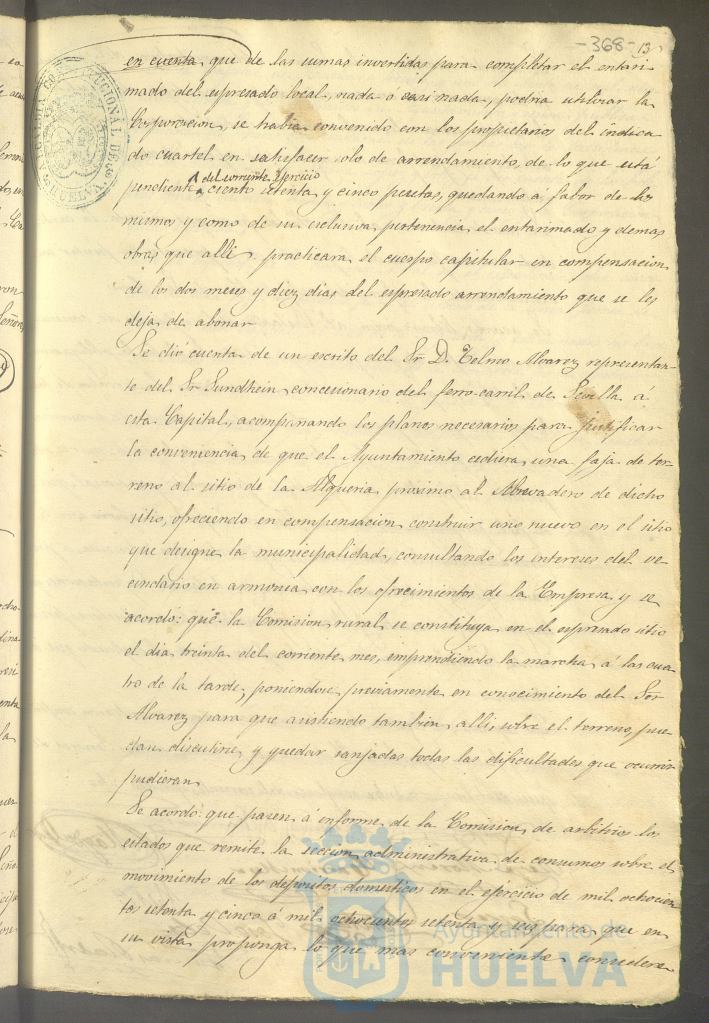 -368- 13
en cuenta, que de las sumas invertidas para completar el entari-
mado del espresado local, nada ó casi nada, podria utilizar la
Corporacion, se habia convenido con los propietarios del indica-
do cuartel en satisfacer solo de arrendamiento, de lo que está
del corriente Ejercicio
pendiente, ciento setenta y cinco pesetas, quedando á fabor de los
mismos y como de su esclusiva pertenencia el entarimado y demas
obras que alli practicara el cuerpo capitular en compensacion
de los dos meses y diez dias del espresado arrendamiento que se les
deja de abonar
Se dió cuenta de un escrito del Sr. D. Telmo Alvarez representan-
te del Sr Sundhein concesionario del ferro-carril de Sevilla á
esta Capital, acompañando los planos necesarios para justificar
la conveniencia de que el Ayuntamiento cediera una faja de ter-
reno al sitio de la Alqueria, proximo al Abrevadero de dicho
sitio, ofreciendo en compensacion construir uno nuevo en el sitio
que designe la municipalidad, consultando los intereses del ve-
cindario en armonia con los ofrecimientos de la Empresa, y se
acordó: que la Comision rural se constituya en el espresado sitio
el dia treinta del corriente mes, emprendiendo la marcha á las cua-
tro de la tarde, poniendose previamente en conocimiento del Sor
Alvarez para que asistiendo tambien alli, sobre el terreno, pue-
dan discutirse y quedar sanjadas todas las dificultades que ocurrir
pudieran
Se acordó que pasen á informe de la Comision de arbitrios los
estados que remite la seccion administrativa de consumos sobre el
movimiento de los depósitos domesticos en el ejercicio de mil ochocien-
tos setenta y cinco á mil ochocientos setenta y seis para que en
su vista proponga lo que mas conveniente considere
Ayuntamiento de
HUELVA